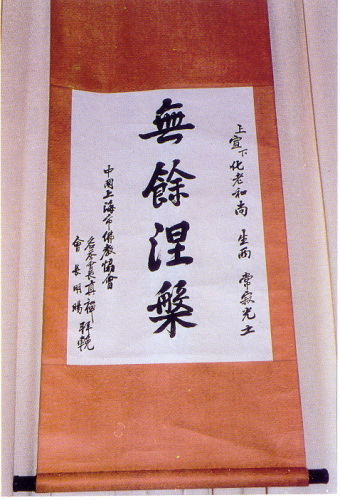 上宣下化老和尚 生西 常寂光土
無餘涅槃
中国上海市佛教協會
名誉會長真禪 拜輓
會長明暘